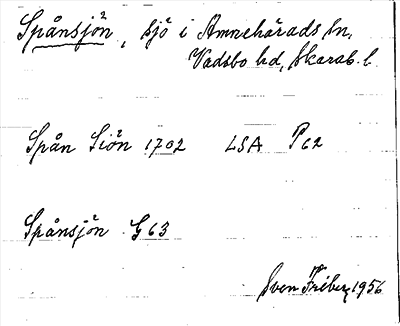 Spånsjön, sjö i Amnehärads sn,
Vadsbo hd, Skarab. l.
Spån Siön 1702 LSA P62
Spånsjön G63
Sven Friberg 1956